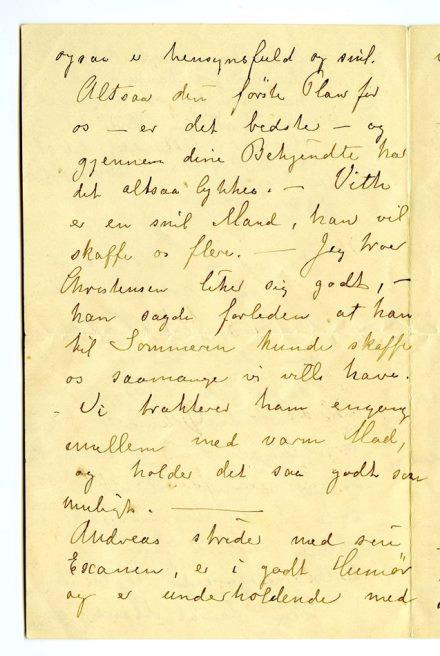 ogsaa er hensynsfuld og snil.
Altsaa din første Plan for
os — er det bedste — og
gjennem dine Bekjendte har
det altsaa lykkes. — Vith
er en snil Mand, han vil
skaffe os flere. — Jeg troer
Christensen liker sig godt, —
han sagde forleden at han
til Sommeren kunde skaffe
os saamange vi ville have.
- Vi trakterer ham engang
imellem med varm Mad,
og holder det saa godt som
muligt. —
Andreas strider med sin
Examen, er i godt Humør
og er underholdende med